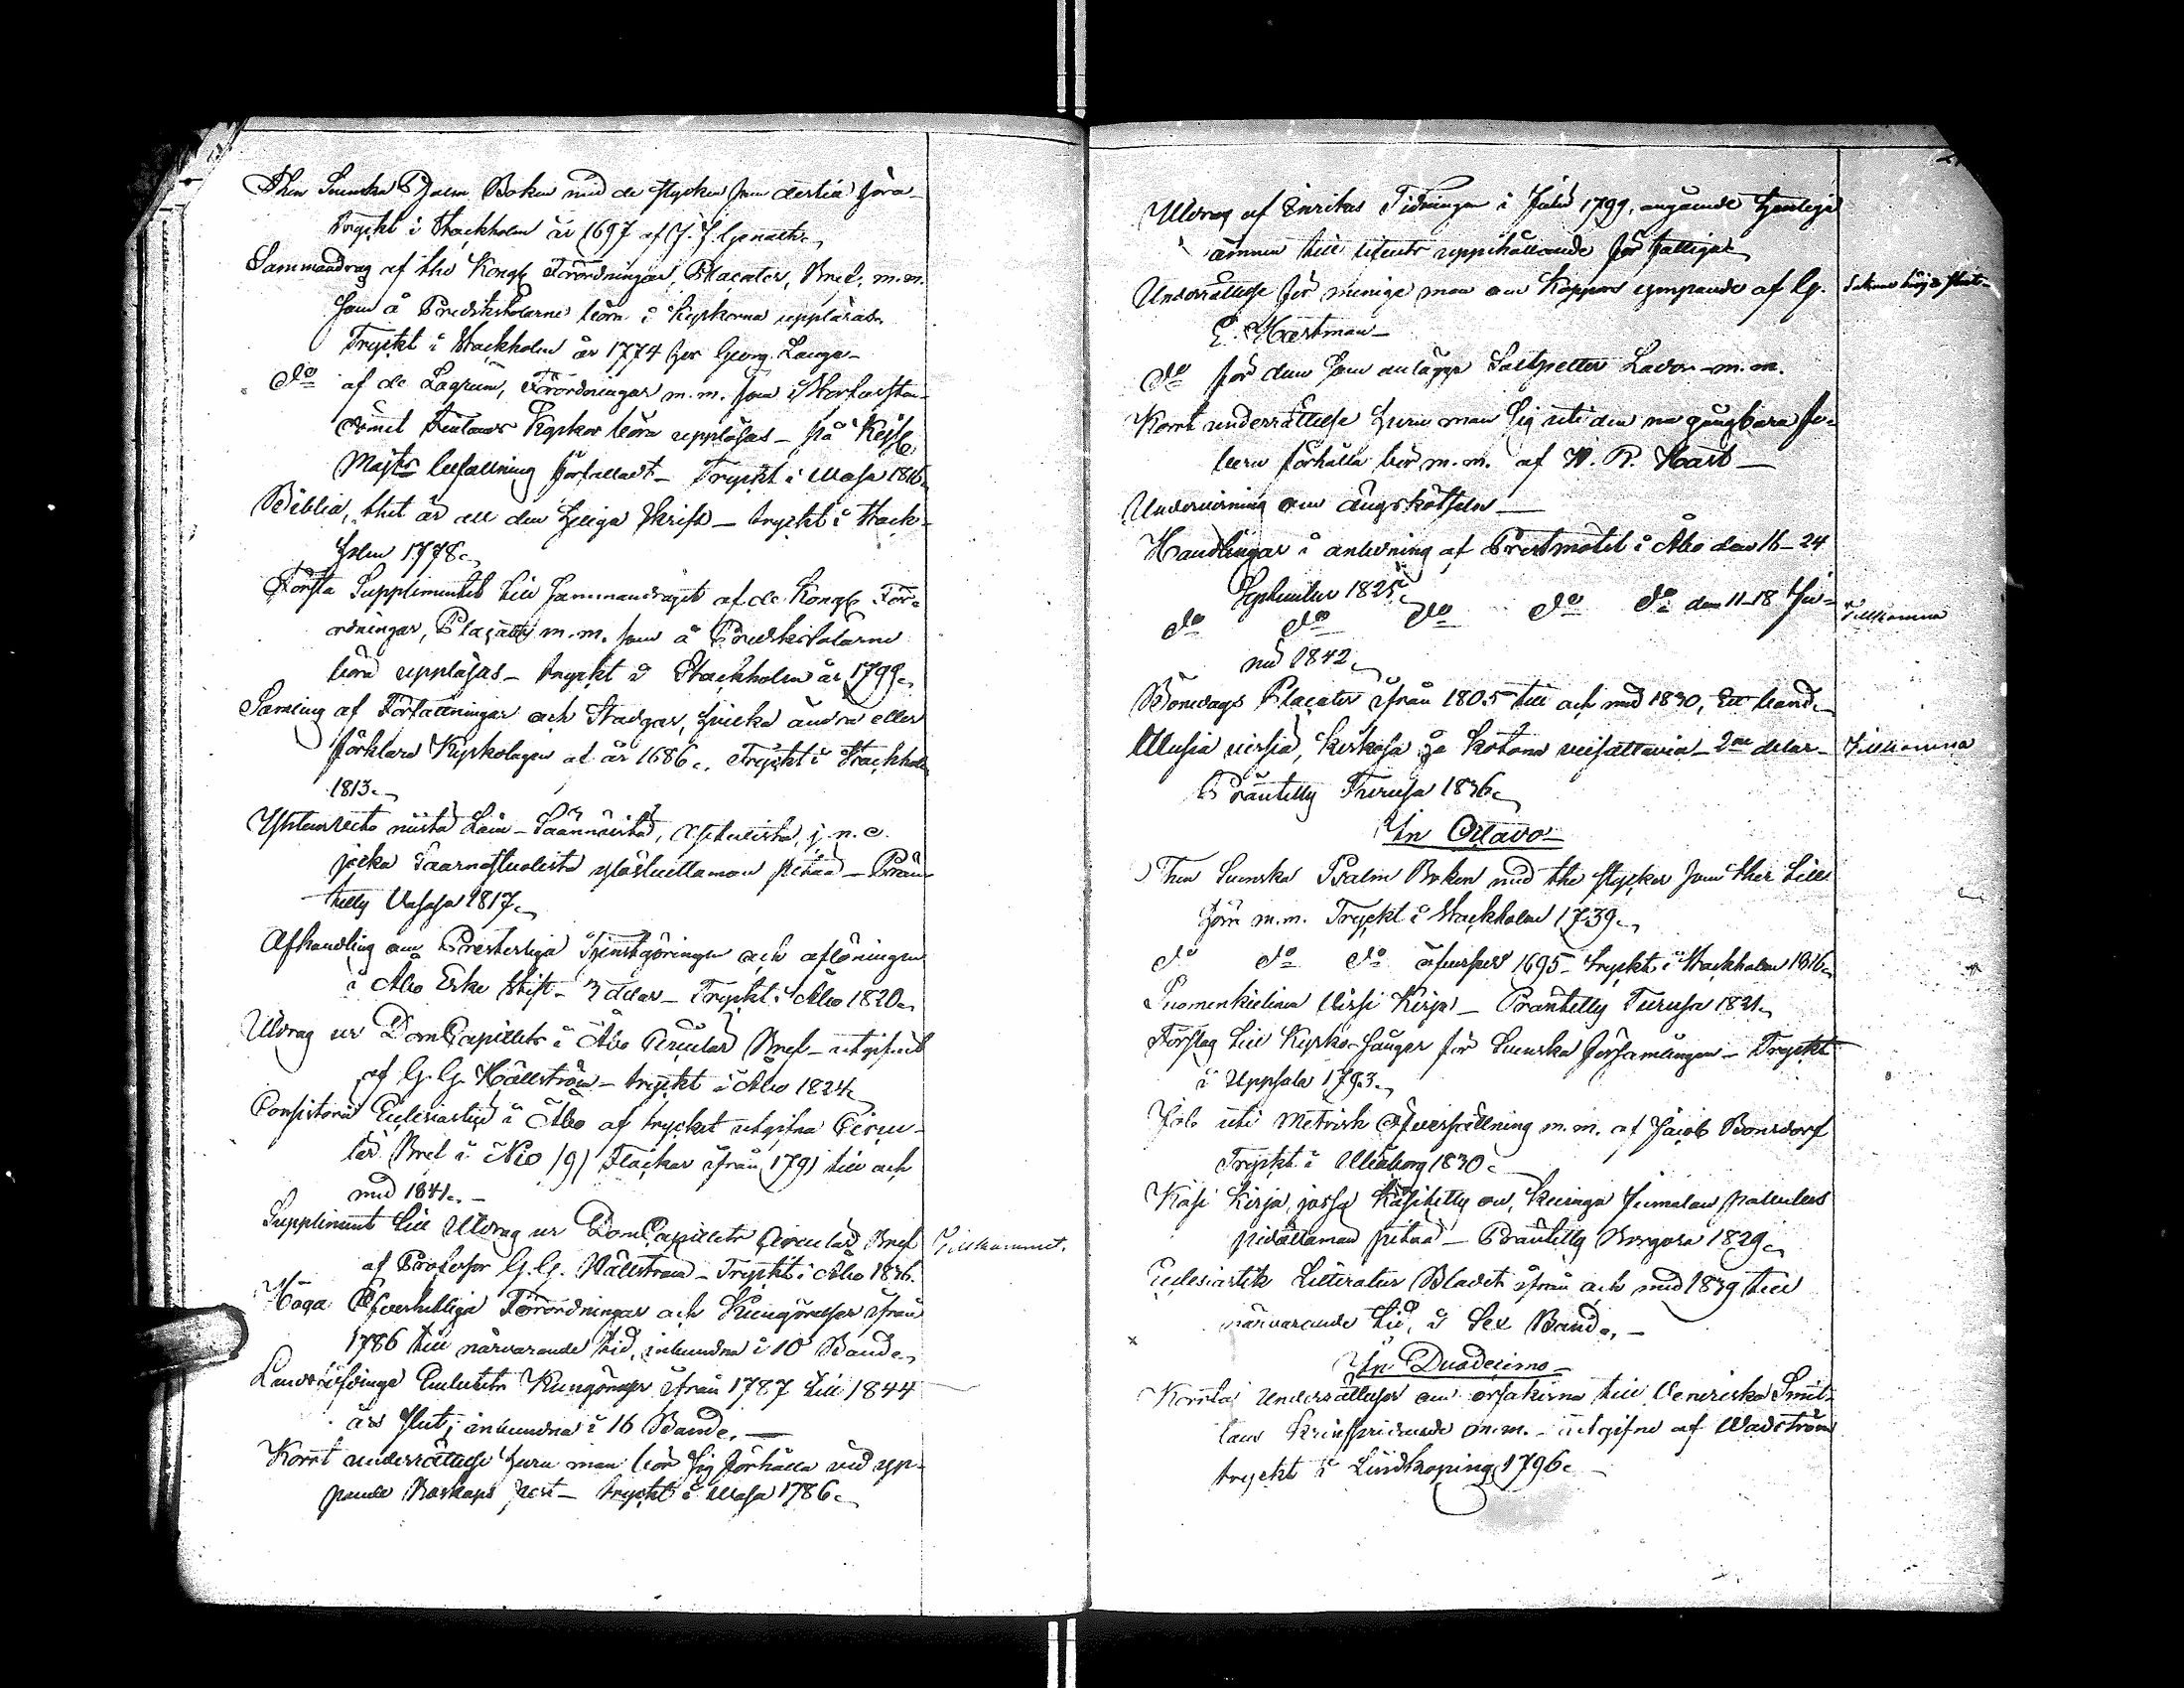 Then Svenska Psalm Boken med de stycken som dertil höra
Tryckt i Stockholm år 1697 af J. J. Genath.
Sammandrag af the Kongl Förordningar, Placater, Bref, m.m.
som å Predikstolarne böra i Kyrkorna uppläsas
Tryckt i Stockholm år 1774 hos Georg Lange
do af de Lagrum, Förordningar m.m. som i Storfursten-
dömet Finlands Kyrkor böra uppläsas – på Kejsl
Majts befallning författadt – Tryckt i Wasa 1816
Biblia, thet är all den Heliga Skrift – tryckt i Stock-
holm 1778.
Första Supplementet till Sammandraget af de Kongl För-
ordningar, Placater m.m. som å Predikstolarne
böra uppläsas – tryckt i Stockholm år 1799.
Samling af Författningar och Stadgar, hvilka ändra eller
förklara Kyrkolagen af år 1686. Tryckt i Stockholm
1813.
Yhteenveto niistä Lain-Säännöistä, Asetuksista, j.n.e.
jotka Saarnastuolista ylösluettaman pitää – Prän-
tätty Vasasa 1817.
Afhandling om Presterliga Tjenstgöringen och aflöningen
i Åbo Erke Stift – 3 delar – Tryckt i Åbo 1820.
Utdrag ur DomCapitlets i Åbo Circulär Bref – utgifvit
af G. G. Hällström – tryckt i Åbo 1824.
Consistorii Ecclesiastici i Åbo af trycket utgifna Circu-
lär Bref i Nio /9/ Häckar ifrån 1791 till och
med 1841. –
Supplement till Utdrag ur DomCapitlets Circulär Bref
Tillkommit.
af Professor G. G. Hällström – Tryckt i Åbo 1836.
Höga Öfverhetliga Förordningar och Kungörelser ifrån
1786 till närvarande tid, inbundna i 10 Band.
Landshöfdinge Embetets Kungörelser ifrån 1787 till 1844
års slut, inbundna i 16 Band. —
Kort underrättelse huru man bör sig förhålla vid yp-
pande Boskaps pest – tryckt i Wasa 1786.
Utdrag af Inrikes Tidningar i Julii 1799, angående tjenliga
ämnen till lifvets uppehållande för fattiga
Underrättelse för menige man om Koppors ympande af G.
E. Haartman –
do för dem som anlägga Saltpetter Lador m.m.
Kort underrättelse huru man sig uti den nu gångbara fe-
bern förhålla bör m.m. af W. R. Hast —
Undervisning om ängsskötseln —
Handlingar i anledning af Prestmötet i Åbo den 16–24
September 1825.
do do do do do den 11–18 Ju-
Tillkomna
nii 1842.
Böndags Placater ifrån 1805 till och med 1830, Ett band.
Uusia virsiä, kirkosa ja kotona veisattavia – 2ne delar –
Tillkomna
Präntätty Turusa 1836.
In Octavo –
Then Svenska Psalm Boken med the stycker som ther till
höra m.m. Tryckt i Stockholm 1739.
do do do öfversedd 1695 – tryckt i Stockholm 1816.
Suomenkielinen Virsi Kirja – Präntätty Turusa 1821.
Förslag till Kyrko-Sånger för Svenska församlingen – Tryckt
i Uppsala 1793.
Job uti Metrisk öfversättning m.m. af Jacob Bonsdorf
Tryckt i Uleåborg 1830.
Käsi Kirja, jossa käsitetty on, kuinga Jumalan palvelus
pidättämän pitää – Präntätty Borgosa 1829.
Ecclesiastik Litteratur Bladet ifrån och med 1839 till
närvarande tid, i Sex Band. –
In Duodecimo –
Korrta Underrättelser om orsakerna till Veneriska Smit-
tans kringspridande m.m. – utgifne af Wadström
tryckt i Lindköping 1796.